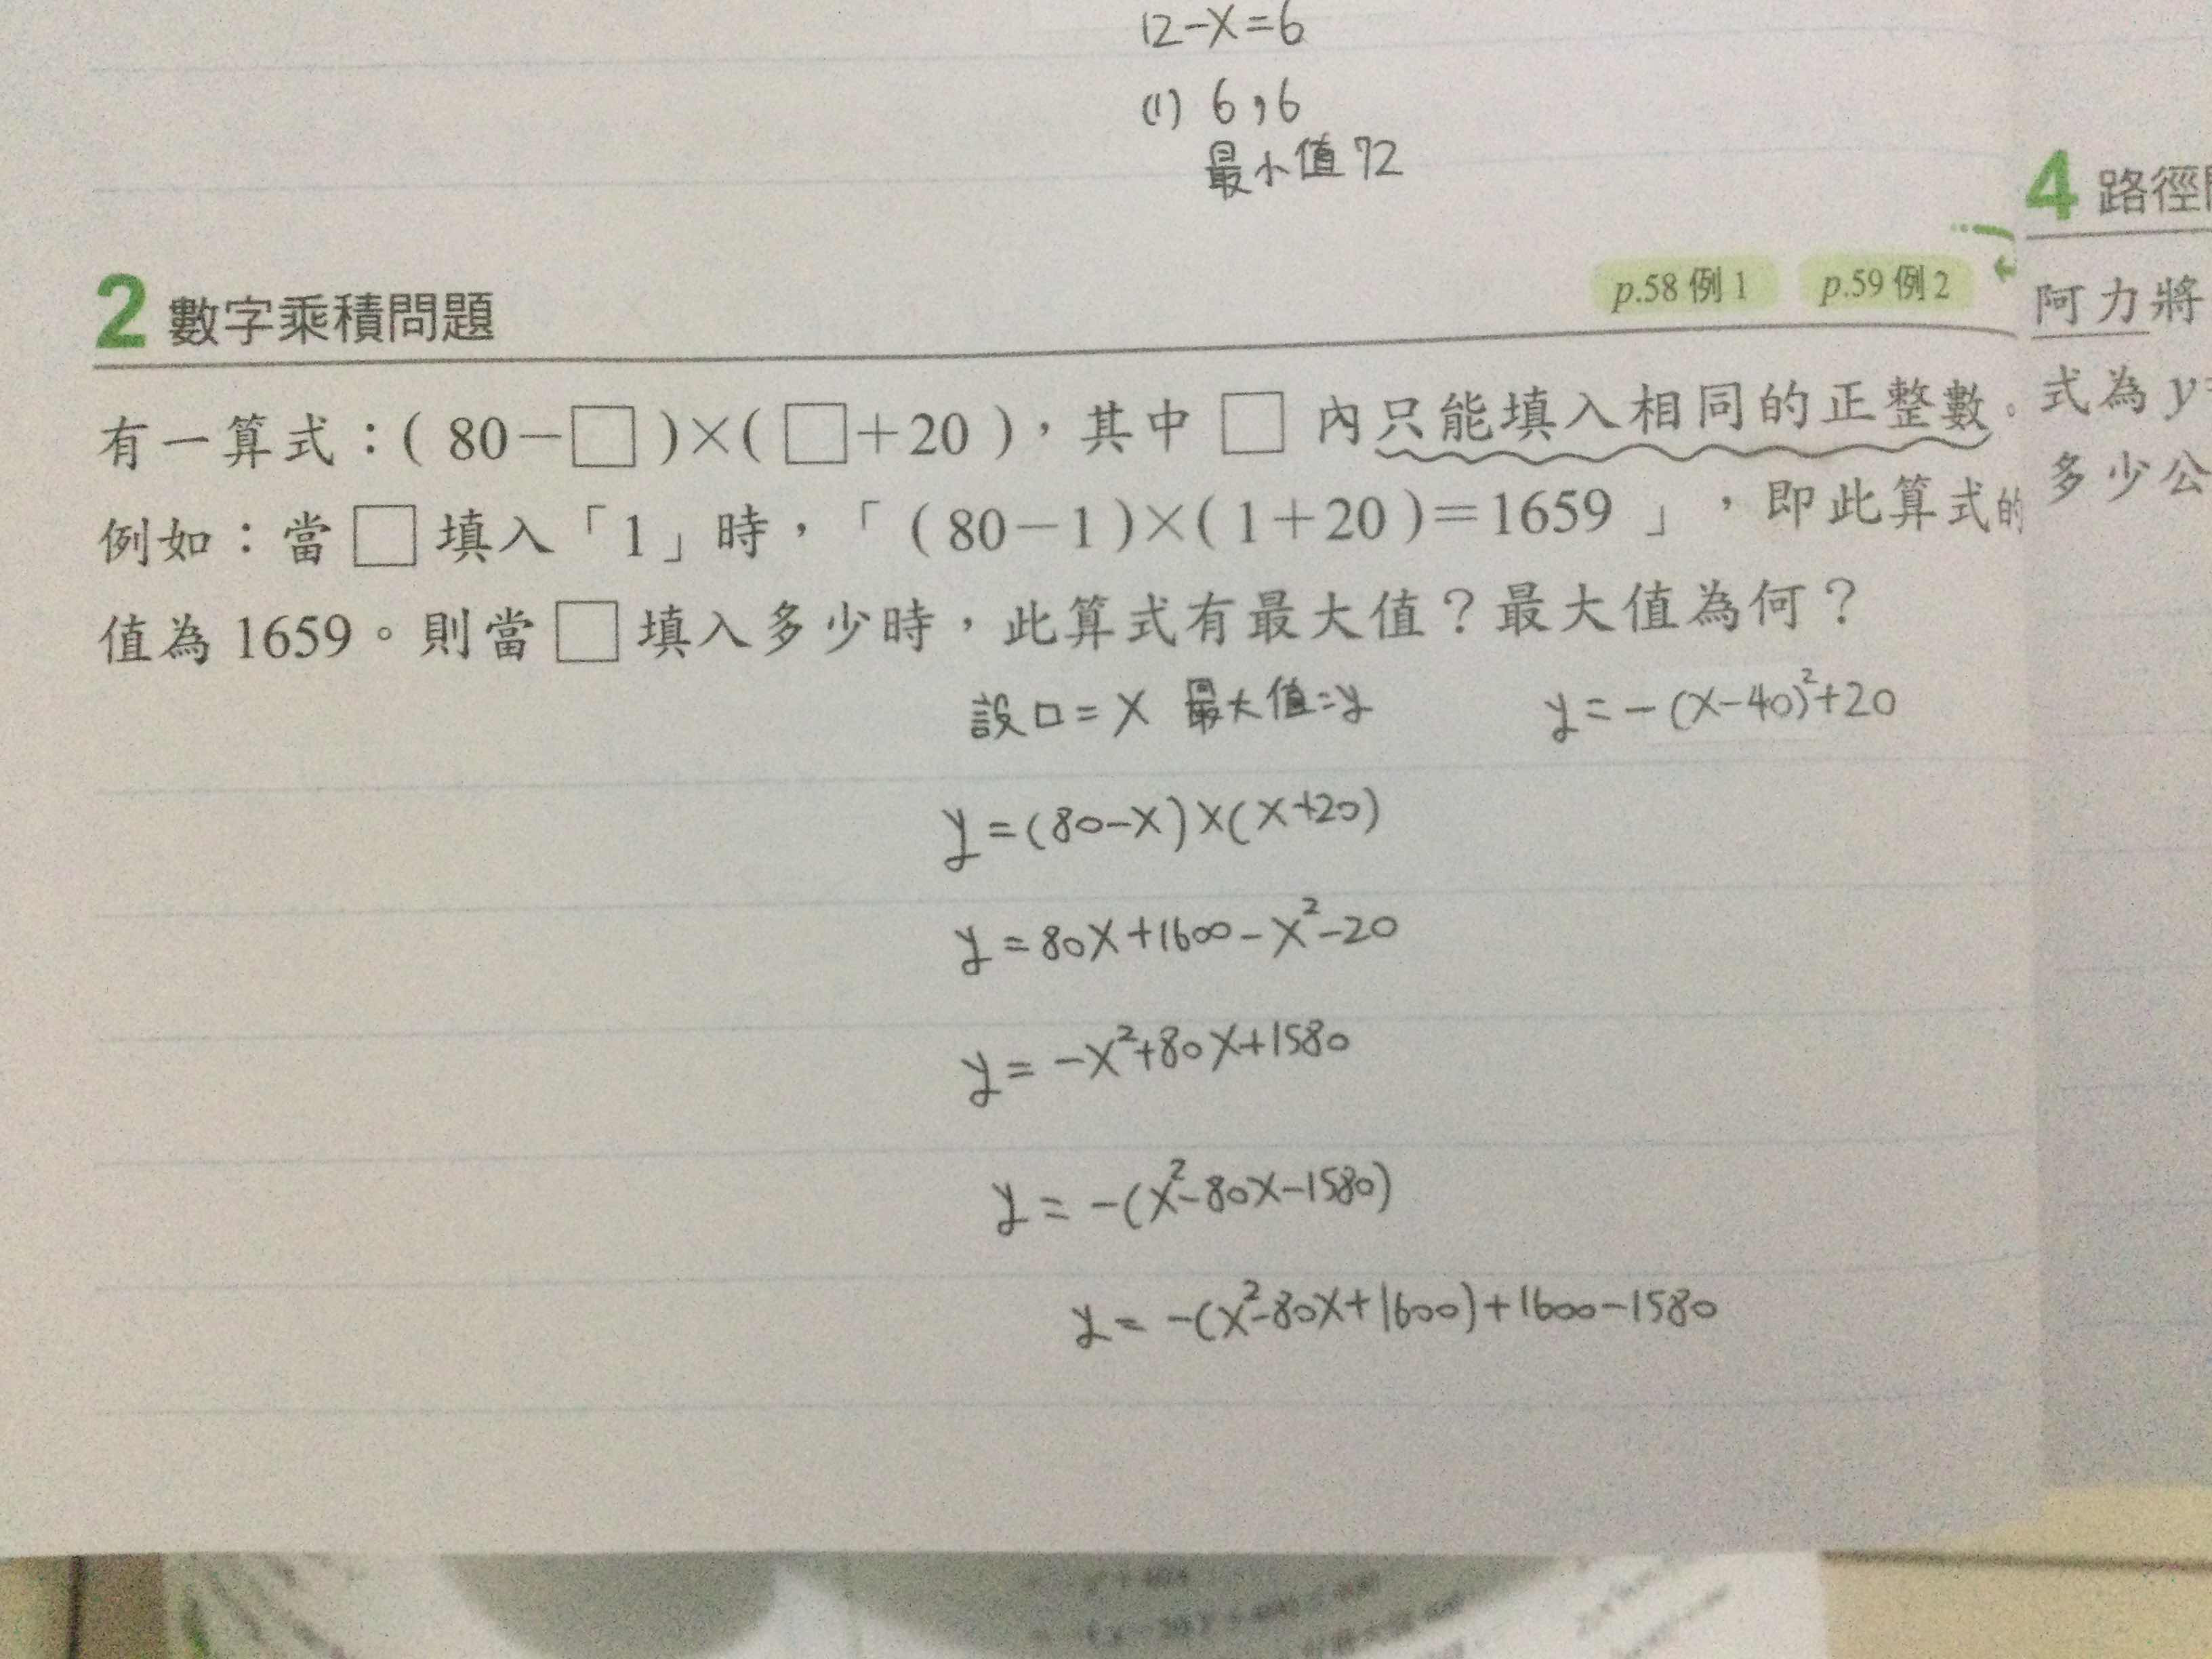 12-x=6
(1) 6,6
最小值72
2 數字乘積問題
p.58 例1 p.59 例2
有一算式:(80-□)×(□+20),其中□內只能填入相同的正整數。
例如:當□填入「1」時,「(80-1)×(1+20)=1659」,即此算式的
值為1659。則當□填入多少時,此算式有最大值?最大值為何?
設□=x 最大值=y
y=(80-x)×(x+20)
y=80x+1600-x²-20
y=-x²+80x+1580
y=-(x²-80x-1580)
y=-(x²-80x+1600)+1600-1580
y=-(x-40)²+20
4 路徑
阿力將
式為y=
多少公